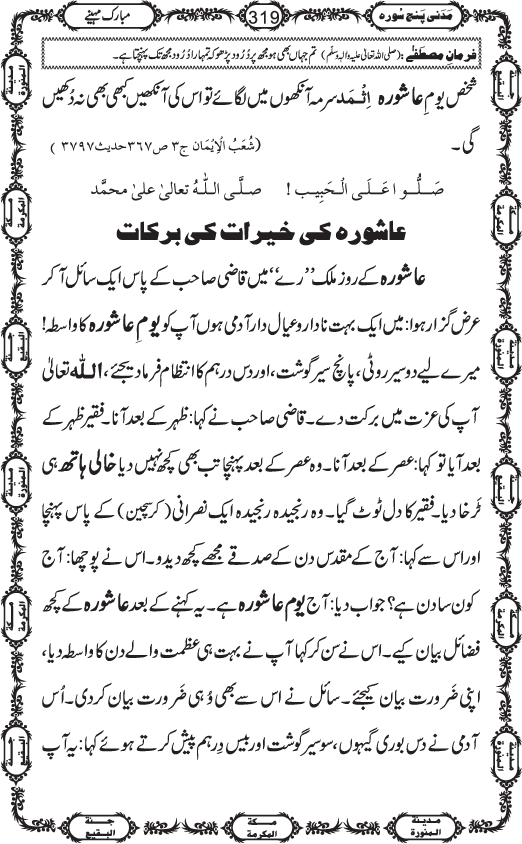 مَدَنی پنج سورہ
319
مبارک مہینے
فرمانِ مصطفٰے : (صلی اللہ تعالیٰ علیہ والہ وسلّم) تم جہاں بھی ہو مجھ پر دُرُود پڑھو کہ تمہارا دُرُود مجھ تک پہنچتا ہے۔
شخص یومِ عاشورہ اِثْمَد سرمہ آنکھوں میں لگائے تو اس کی آنکھیں کبھی بھی نہ دُکھیں
گی۔ (شُعَبُ الْاِیْمَان ج۳ ص۳۶۷ حدیث ۳۷۹۷ )
صَلُّو ا عَلَی الْحَبِیب ! صلَّی اللہُ تعالیٰ علیٰ محمَّد
عاشورہ کی خیرات کی برکات
عاشورہ کے روز ملک ’’رے‘‘ میں قاضی صاحب کے پاس ایک سائل آ کر
عرض گزار ہوا: میں ایک بہت نادار و عیال دار آدمی ہوں آپ کو یومِ عاشورہ کا واسطہ!
میرے لیے دو سیر روٹی، پانچ سیر گوشت، اور دس درہم کا انتظام فرما دیجئے، اللہ تعالیٰ
آپ کی عزت میں برکت دے۔ قاضی صاحب نے کہا: ظہر کے بعد آنا۔ فقیر ظہر کے
بعد آیا تو کہا: عصر کے بعد آنا۔ وہ عصر کے بعد پہنچا تب بھی کچھ نہیں دیا خالی ہاتھ ہی
ٹَرخا دیا۔ فقیر کا دل ٹوٹ گیا۔ وہ رنجیدہ رنجیدہ ایک نصرانی (کرسچین) کے پاس پہنچا
اور اس سے کہا: آج کے مقدس دن کے صدقے مجھے کچھ دیدو۔ اس نے پوچھا: آج
کون سا دن ہے؟ جواب دیا: آج یوم عاشورہ ہے۔ یہ کہنے کے بعد عاشورہ کے کچھ
فضائل بیان کیے۔ اس نے سن کر کہا آپ نے بہت ہی عظمت والے دن کا واسطہ دیا،
اپنی ضَرورت بیان کیجئے۔ سائل نے اس سے بھی وُہی ضَرورت بیان کر دی۔ اُس
آدمی نے دس بوری گیہوں، سو سیر گوشت اور بیس دِرہم پیش کرتے ہوئے کہا: یہ آپ
مدینة المنورة
مكة المكرمة
جنة البقيع
مدینة المنورة
مكة المكرمة
جنة البقيع
جنة البقيع
مكة المكرمة
مدینة المنورة
جنة البقيع
مكة المكرمة
مدینة المنورة
جنة البقيع
مكة المكرمة
مدینة المنورة